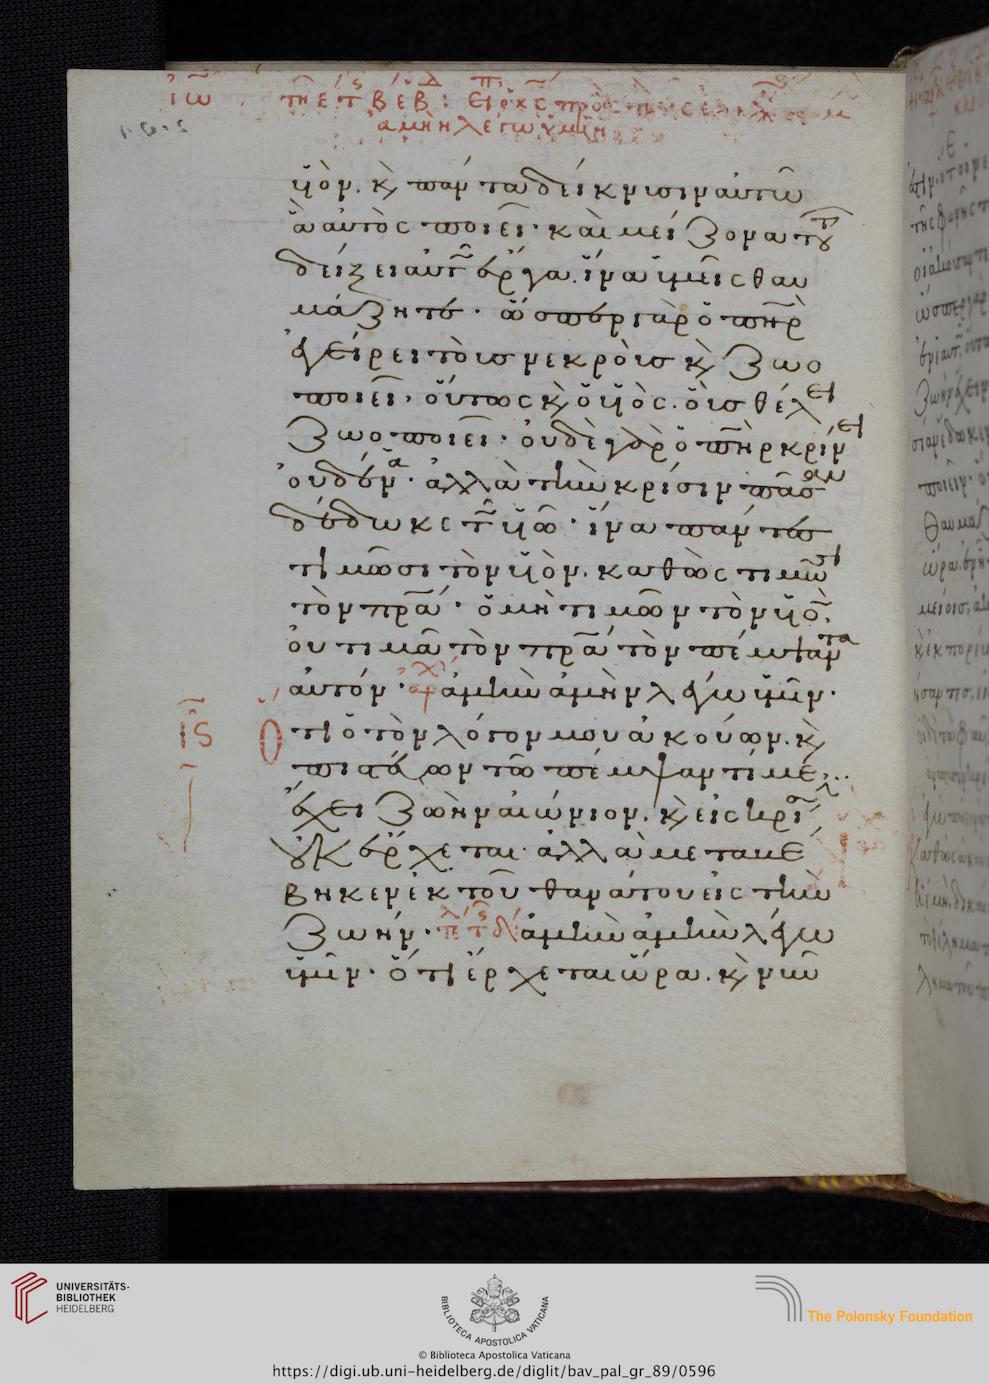 ἰω τῆ ε τ β εβ: Εἶ ὁ κς πρὸς
ἀμὴν λέγω ὑμῖν
υἱὸν. κ πάντα δείκνυσιν αὐτῶ
ἃ αὐτὸς ποιεῖ· καὶ μείζονα τού
δείξει αὐτῶ ἔργα. ἵνα ὑμεῖς θαυ
μάζητε· ὥσπερ γὰρ ὁ πηρ
ἐγείρει τοὺς νεκροὺς κ ζωο
ποιεῖ· οὕτως κ ὁ υἱὸς. οὓς θέλει
ζωοποιεῖ· οὐδὲ γὰρ ὁ πηρ κρίνει
οὐδένα· ἀλλὰ τὴν κρίσιν πᾶσαν
δέδωκε τῶ υἱῶ· ἵνα πάντες
τιμῶσι τὸν υἱὸν. καθὼς τιμῶσι
τὸν πρα· ὁ μὴ τιμῶν τὸν υἱὸν.
οὐ τιμᾶ τὸν πρα τὸν πέμψαντα
αὐτόν· ἀρχ ἀμὴν ἀμὴν λέγω ὑμῖν·
Ὅτι ὁ τὸν λόγον μου ἀκούων. κ
πιστεύων τῶ πέμψαντί με...
ἔχει ζωὴν αἰώνιον. κ εἰς κρίσιν
οὐκ ἔρχεται· ἀλλὰ μεταβέ
βηκεν ἐκ τοῦ θανάτου εἰς τὴν
ζωήν· τελ τς δ ἀμὴν ἀμὴν λέγω
ὑμῖν· ὅτι ἔρχεται ὥρα. κ νῦν
UNIVERSITÄTS-
BIBLIOTHEK
HEIDELBERG
BIBLIOTECA APOSTOLICA VATICANA
The Polonsky Foundation
© Biblioteca Apostolica Vaticana
https://digi.ub.uni-heidelberg.de/diglit/bav_pal_gr_89/0596